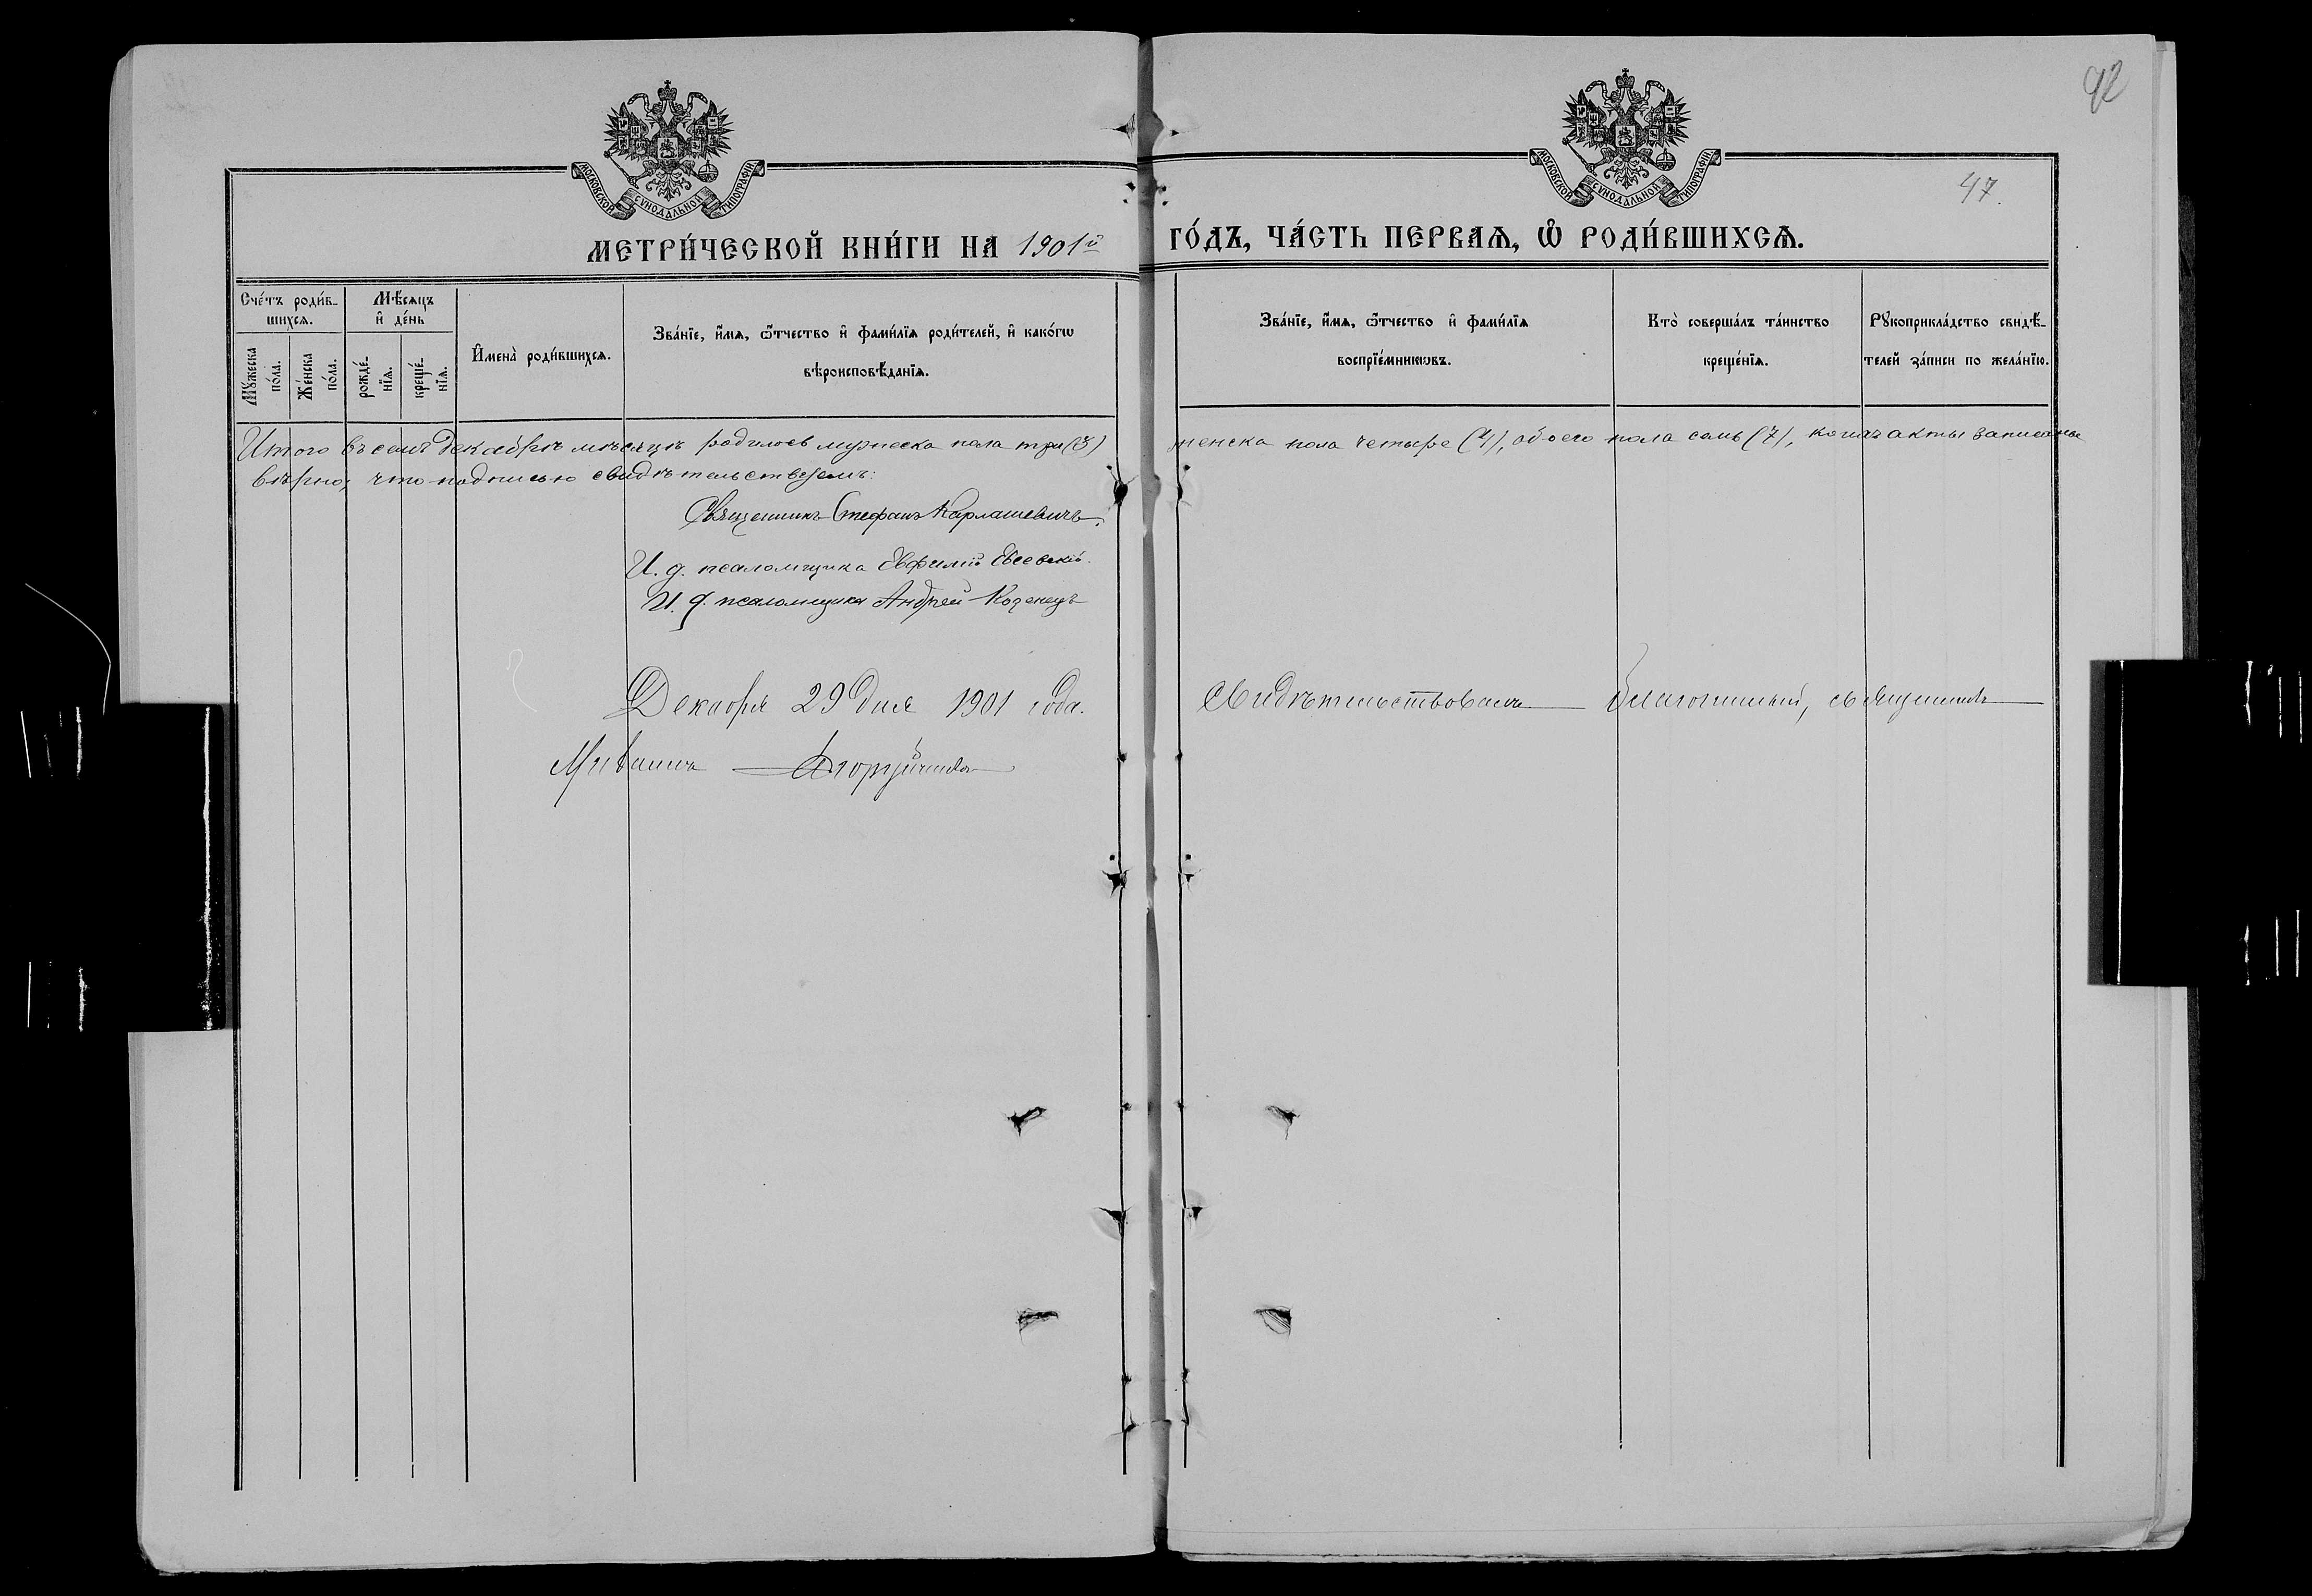 92
47.
МОСКОВСКОЙ СѴНОДАЛЬНОЙ ТИПОГРАФІИ.
МОСКОВСКОЙ СѴНОДАЛЬНОЙ ТИПОГРАФІИ.
МЕТРИ́ЧЕСКОЙ КНИ́ГИ НА 1901й ГО́ДЪ, ЧА́СТЬ ПЕРВАѦ, Ѽ РОДИ́ВШИХСѦ.
Сче́тъ роди́в-
шихсѧ.
Мꙋ́жеска по́ла.
Же́нска по́ла.
Мѣ́сѧцъ
и҆ де́нь
рожде́-
нїѧ.
креще́-
нїѧ.
И҆мена̀ роди́вшихсѧ.
Зва́нїе, и҆́мѧ, ѻ҆́тчество и҆ фами́лїѧ роди́телей, и҆ како́гѡ
вѣроисповѣ́данїѧ.
Зва́нїе, и҆́мѧ, ѻ҆́тчество и҆ фами́лїѧ
воспрїе́мникѡвъ.
Кто̀ соверша́лъ та́инство
креще́нїѧ.
Рꙋкоприкла́дство свидѣ́-
телей за́писи по жела́нїю.
Итого въ семъ Декабрѣ мѣсяцѣ родилось мужеска пола три (3) женска пола четыре (4), обоего пола семь (7), коихъ акты записаны
вѣрно, что подписью свидѣтельствуемъ:
Священникъ Стефанъ Карлашевичъ.
И. д. псаломщика Евфимій Евсевскій.
И. д. псаломщика Андрей Козенецъ
Декабря 29 дня 1901 года. Свидѣтельствовалъ Благочинный, священникъ